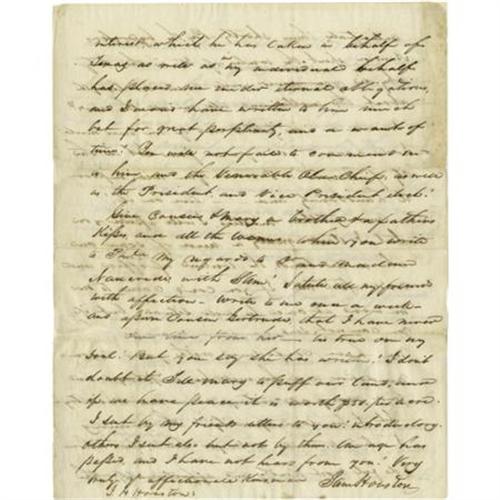 interest which he has taken in behalf of
Texas as well as my individual behalf
has placed me under eternal obligations,
and I would have written to him much
but for great perplexity, and a want of
time! You will not fail to commend me
to him and the Venerable Chief, as well
as the President and Vice President elect.
Give Cousin Mary a brothers & a fathers
Kiss, and all the when you write
to my regards to and Madam
with Sam! Salute all my friends
with affection - Write to me once a week -
and Cousin Gertrude, that I have never
one line from her - its true on my
Soul! But you say she has written! I don't
doubt it
if we have peace it is worth $50. per acre.
I sent by my friends letters to you introductory.
Others I sent also but not by them. An age has
passed, and I have not heard from you. Very
truly yr affectionate Kinsman Sam Houston
J H Houston